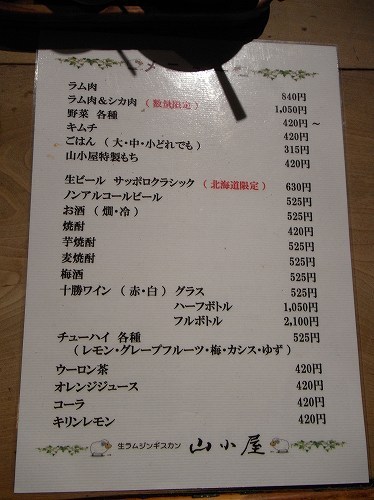 メニュー
ラム肉 840円
ラム肉&シカ肉 (数量限定) 1,050円
野菜 各種 420円 ～
キムチ 420円
ごはん (大・中・小どれでも) 315円
山小屋特製もち 420円
生ビール サッポロクラシック (北海道限定) 630円
ノンアルコールビール 525円
お酒 (燗・冷) 525円
焼酎 420円
芋焼酎 525円
麦焼酎 525円
梅酒 525円
十勝ワイン (赤・白) グラス 525円
ハーフボトル 1,050円
フルボトル 2,100円
チューハイ 各種 525円
(レモン・グレープフルーツ・梅・カシス・ゆず)
ウーロン茶 420円
オレンジジュース 420円
コーラ 420円
キリンレモン 420円
生ラムジンギスカン 山小屋